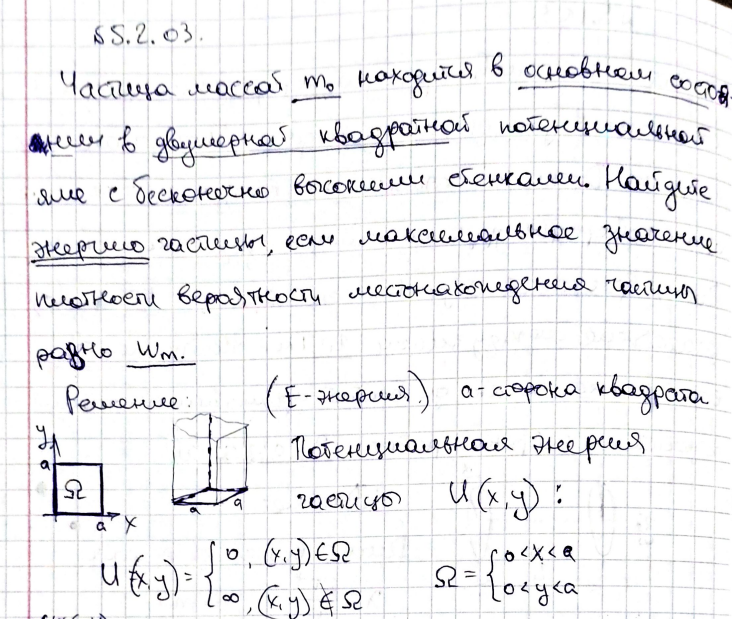 §5.2.03.
Частица массой m₀ находится в основном состоя-
нии в двумерной квадратной потенциальной
яме с бесконечно высокими стенками. Найдите
энергию частицы, если максимальное значение
плотности вероятности местонахождения частицы
равно Wm.
Решение: (E-энергия) a-сторона квадрата
Потенциальная энергия
частицы U(x,y):
y
a
Ω
a x
a a
U(x,y) = { 0, (x,y) ∈ Ω
∞, (x,y) ∉ Ω
Ω = { 0<x<a
0<y<a